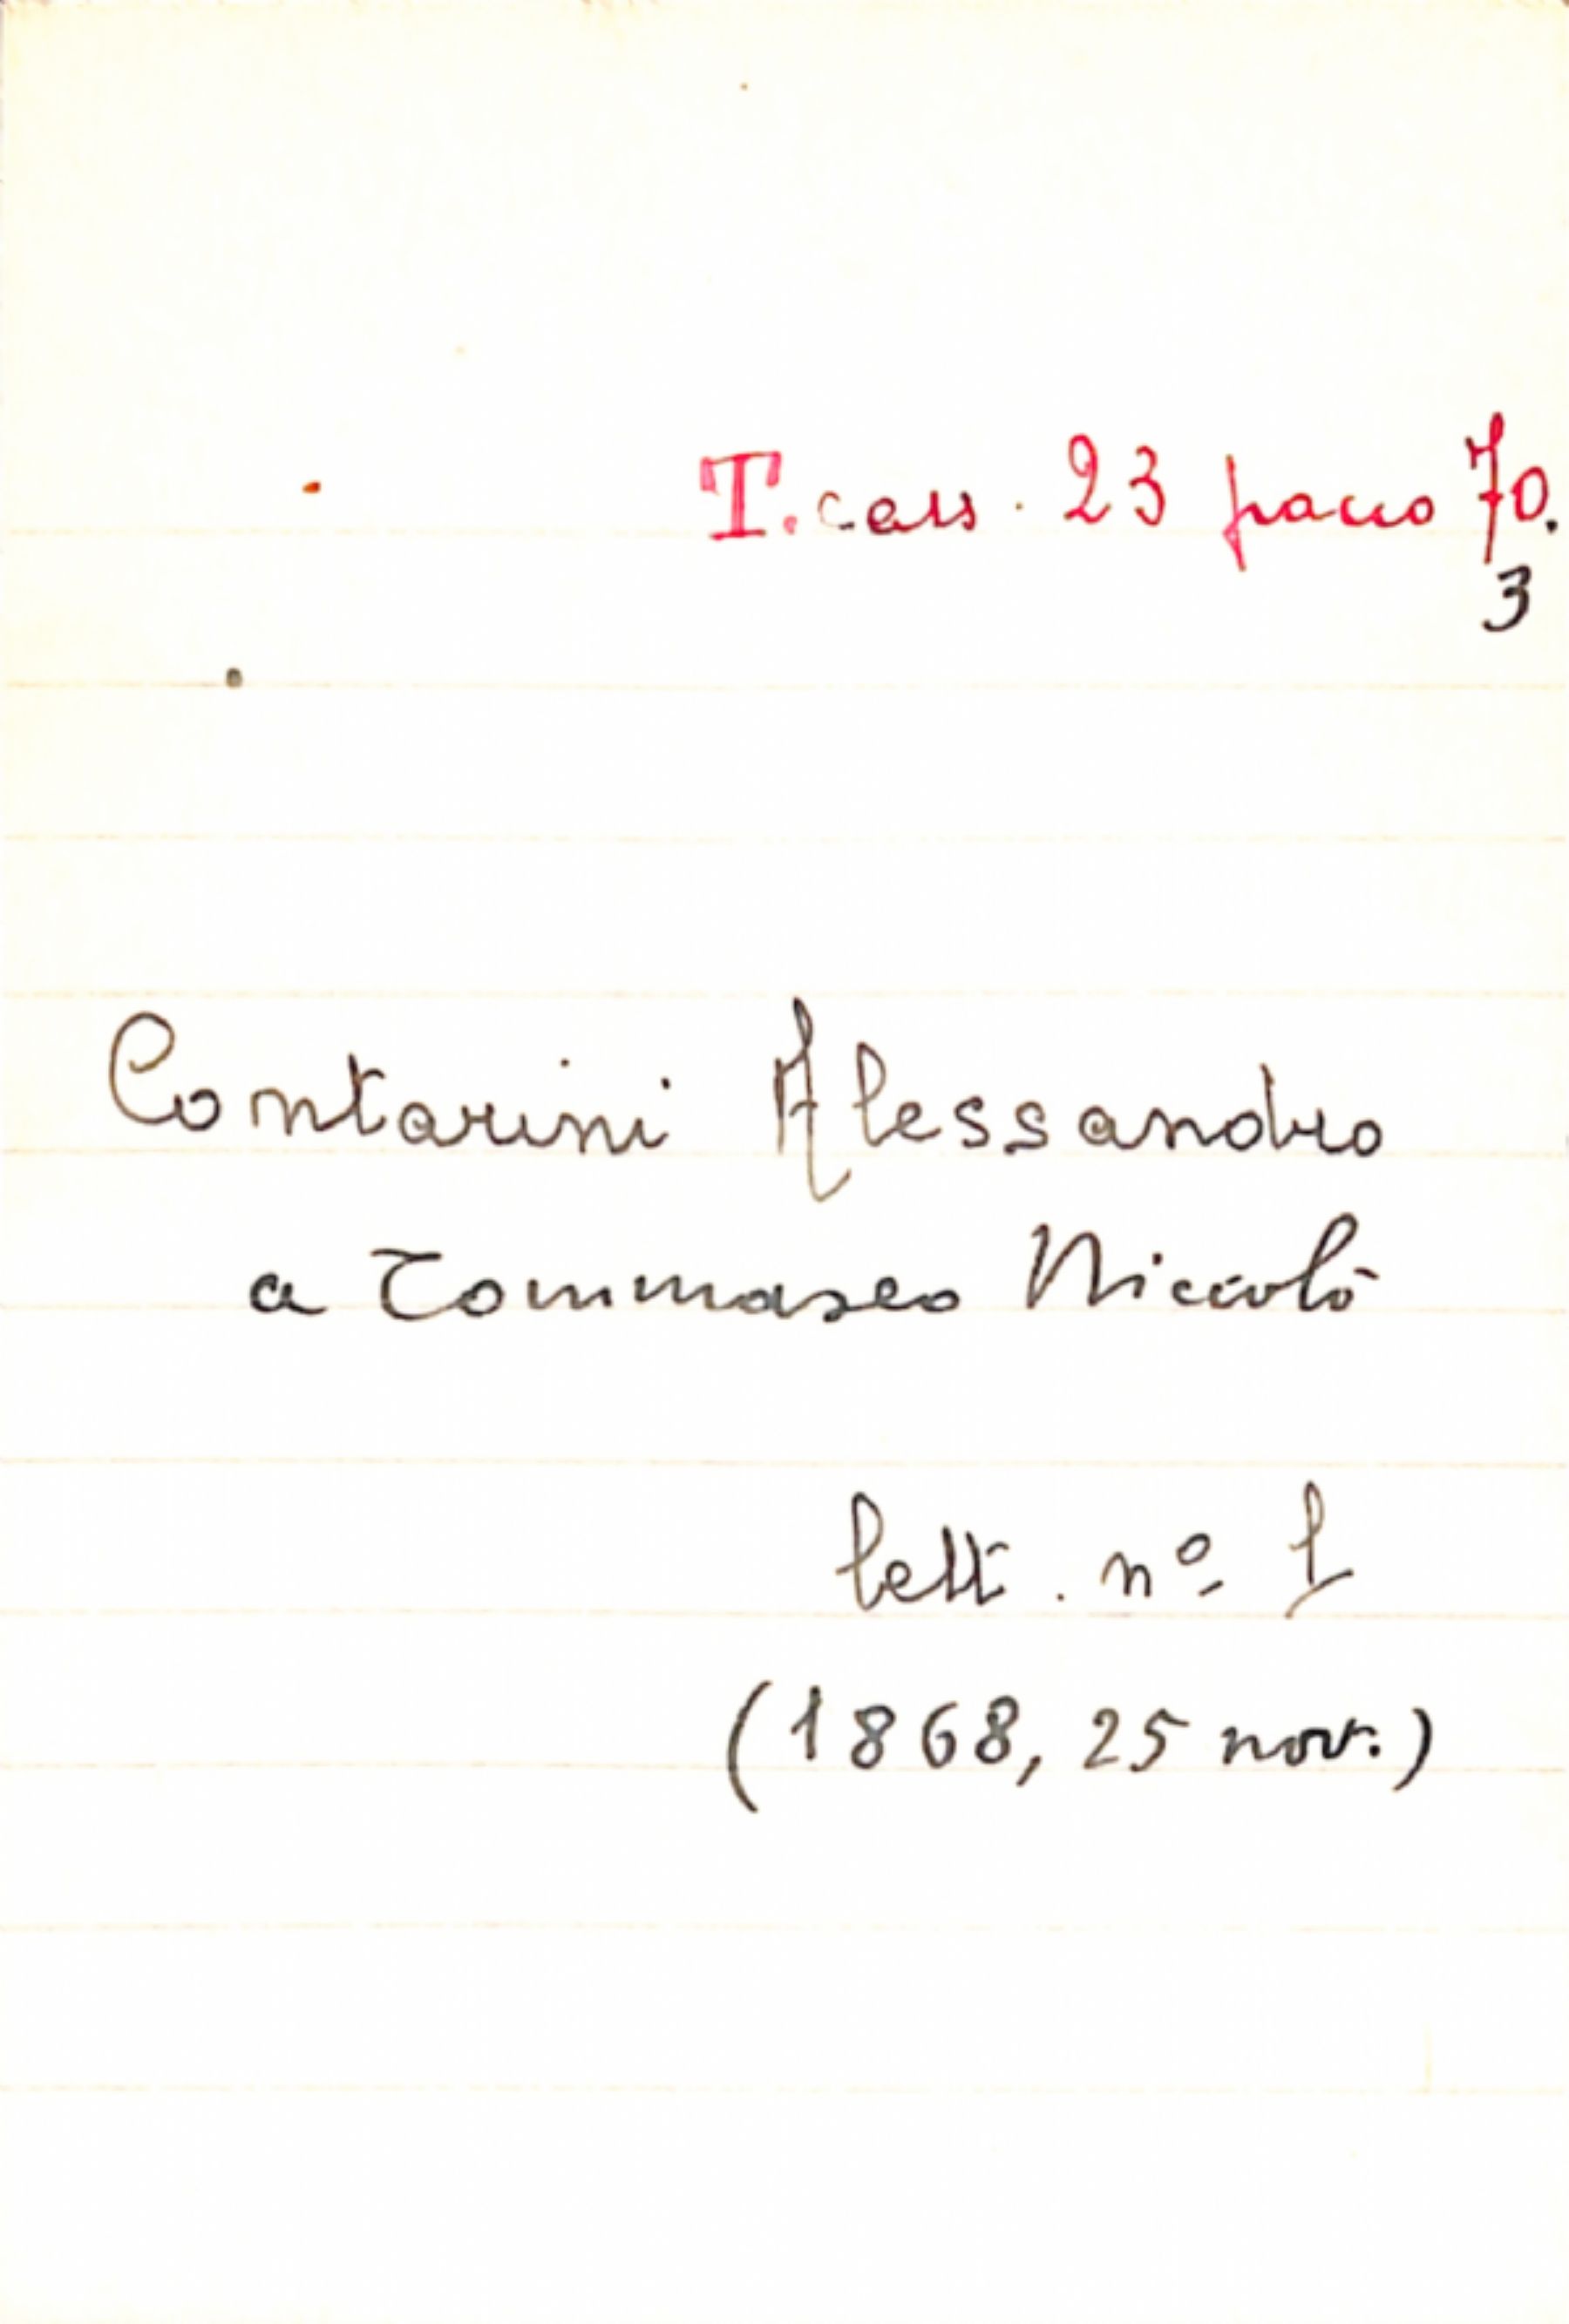 T. cass. 23 pacco 70.
3
Contarini Alessandro
a Tommaseo Niccolò
lett. nº 1
(1868, 25 nov.)